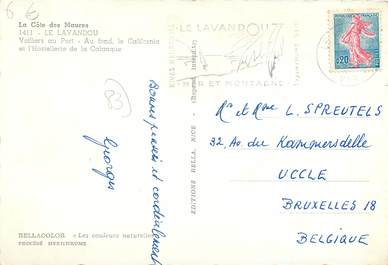 6 €
La Côte des Maures
1411 - LE LAVANDOU
Voiliers au Port - Au fond, le Califórnia
et l'Hostellerie de la Calanque
83
Bonnes pensées et cordialement
Georges
BELLACOLOR « Les couleurs naturelles
PROCÉDÉ HEXICHROME
EDITIONS BELLA, NICE
LE LAVANDOU
MER ET MONTAGNE
0,20
Mr et Mme L. SPREUTELS
32, Av. du Kammersdelle
UCCLE
BRUXELLES 18
BELGIQUE